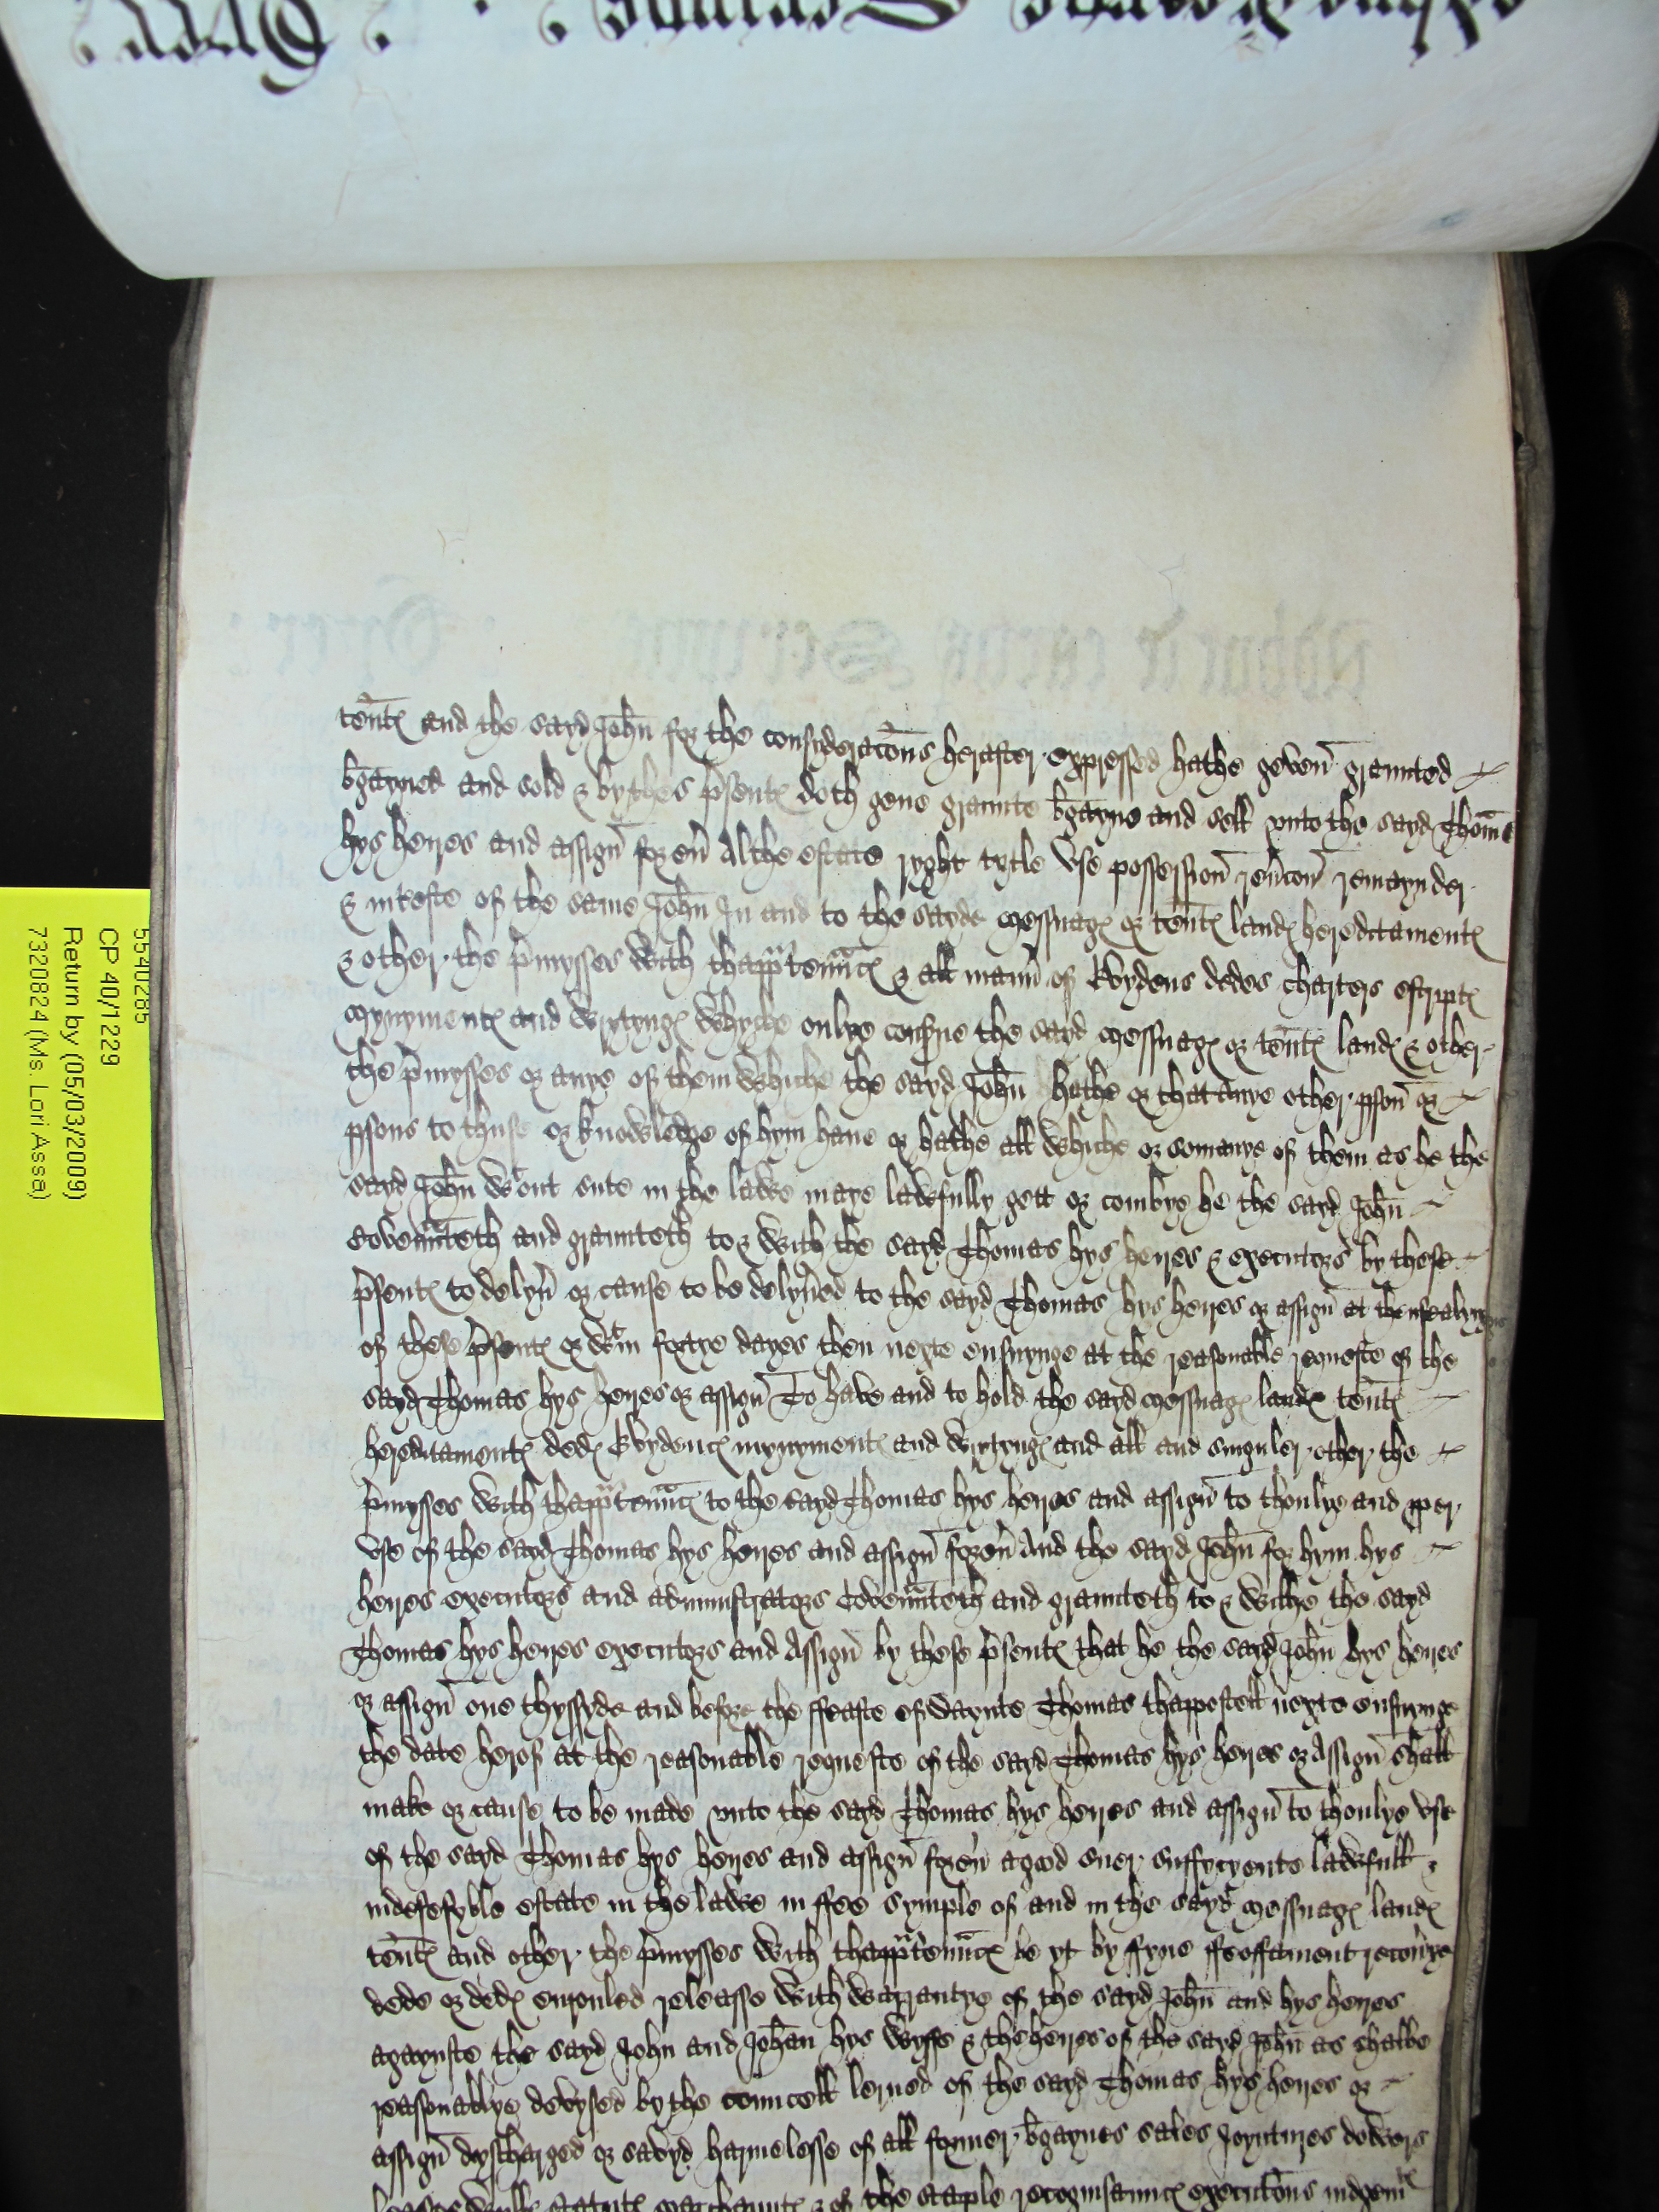 5540285
CP 40/1229
Return by (05/03/2009)
7320824 (Ms. Lori Asse)
tent and the sayd John for the consyderacons herafter expressed hathe geven graunted
bgayned and sold & by thes psent doth geve graunte bgayne and sell unto the sayd Thoms
hys heyres and assign for ev Al the estate ryght tytle Use possession revcon remaynder
& inteste of the same John In and to the sayde messuag or tent land hereditament
& other the pmysses with thapptennc & all mann of Evydens dedes charters escript
mynyment and wrytyng whyche onlye consne the sayd messuag or tent land & other
the pmysses or anye of them whiche the sayd John hathe or that anye other pson or
psons to thuse or knowledge of hym have or hathe all whiche or somanye of them as he the
sayd John wtout sute in the lawe maye lawfully gett or combye he the sayd John
Covennteth and graunteth to & with the sayd Thomas hys heyres & executors by these
psent to delyv or cause to be delyved to the sayd Thomas hys heyres or assign at thensealyng
of these psent or wtin fortye dayes then nexte ensuynge at the reasonable requeste of the
sayd Thomas hys heyres or assign To have and to hold the sayd messuag land tent
hereditament ded Evydenc mynyment and wrytyng and all and singuler other the
pmysses with thapptennc to the sayd Thomas hys heyres and assign to thonlye and pper
Use of the sayd Thomas hys heyres and assign for ev And the sayd John for hym hys
heyres executors and administrators Covennteth and graunteth to & withe the sayd
Thomas hys heyres executors and Assign by these psent that he the sayd John hys heyres
or assign one thyssyde and before the ffeaste of Saynte Thomas thappostell nexte ensuynge
the date herof at the reasonable requeste of the sayd Thomas hys heyres or Assign shall
make or cause to be made unto the sayd Thomas hys heyres and assign to thonlye use
of the sayd Thomas hys heyres and assign for ev a good suer suffycyente lawfull
indefesyble estate in the lawe in ffee symple of and in the sayd messuag land
tent and other the pmysses with thapptennc be yt by ffyne ffeoffament recovye
dede or ded enrouled releasse with warrantye of the sayd John and hys heyres
agaynste the sayd John and Johan hys wyffe & the heyres of the sayd John as shalbe
reasonablye devysed by the councell lerned of the sayd Thomas hys heyres or
assign dyscharged or savyd harmelesse of all former bgaynes sales Joyntures dowers
leases wyll statut marchaunt & of the staple recognisaunc execucons iudgem